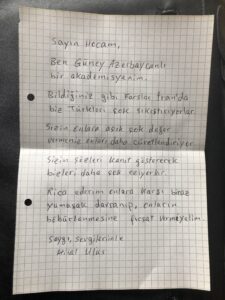 Sayın Hocam,
Ben Güney Azerbaycanlı
bir akademisyanim.
Bildiğiniz gibi Farslar İran'da
biz Türkleri çok sıkıştırıyorlar.
Sizin onlara aşık çok değer
vermeniz onları daha cüretlendiriyor.
Sizin sözleri kanıt göstererek
bizleri daha çok eziyorlar.
Rica ederim onlara karşı biraz
yumaşak davranıp, onların
böbürlanmesine fırsat vermeyelim.
Saygı, Sevgilerimle
Ulus